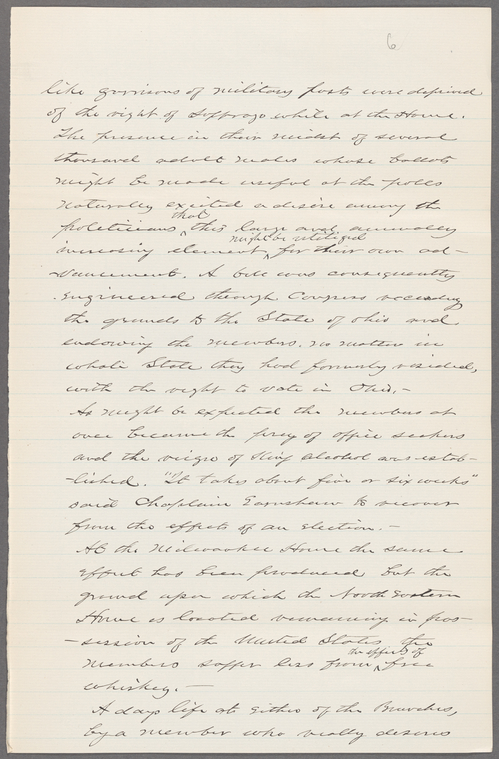 6
like garrisons of military posts were deprived
of the right of suffrage while at the Home.
The presence in their midst of several
thousand adult males whose ballots
might be made useful at the polls
naturally excited a desire among the
politicians that this large and annually
increasing element might be utilized for their own ad-
vancement. A bill was consequently
engineered through Congress receding
the grounds to the State of Ohio and
endowing the members, no matter in
what State they had formerly resided,
with the right to vote in Ohio.-
As might be expected the members at
once became the prey of office seekers
and the reign of King alcohol was estab-
-lished. "It takes about five or six weeks"
said Chaplain Earnshaw to recover
from the effects of an election.-
At the Milwaukee Home the same
effort has been produced but the
ground upon which the North Western
Home is located remaining in pos-
-session of the United States, the
members suffer less from the effects of free
whiskey.-
A days life at either of the Branches,
by a member who really desires